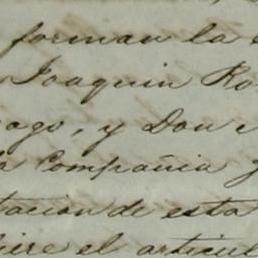 forman la
Joaquin Ro
ogo, y Don
a Compañia
tacion de esta
iere el articul